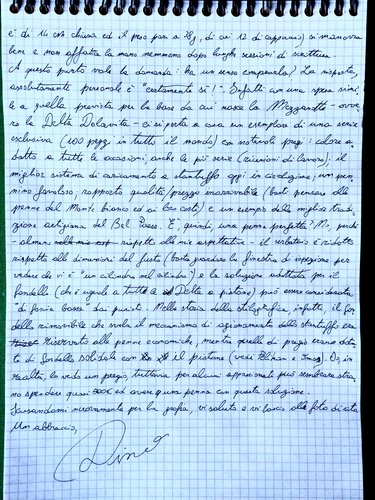 è di 14 cm chiusa ed il peso pari a 28g, di cui 12 di cappuccio) si manovra
bene e non affatica la mano nemmeno dopo lunghe sessioni di scrittura.
A questo punto vale la domanda: ha un senso comperarla? La risposta,
assolutamente personale è "certamente sì!". Infatti con una spesa simi
le a quella prevista per la base da cui nasce la Mezzanotte - ovve
ro la Delta Dolcevita - ci si porta a casa un esemplare di una serie
esclusiva (100 pezzi in tutto il mondo) con notevoli pregi: colore a
datto a tutte le occasioni, anche le più serie (riunioni di lavoro); il
miglior sistema di caricamento a stantuffo oggi in circolazione; un pen
nino favoloso; rapporto qualità/prezzo inarrivabile (basti pensare alle
penne del Monte bianco ed ai loro costi) e un esempio della miglior tradi
zione artigiana del Bel Paese. E', quindi, una penna perfetta? No, perchè
- almeno rispetto alle mie aspettative - il serbatoio è ridotto
rispetto alle dimensioni del fusto (basta guardare la finestra di ispezione per
vedere che vi è "un cilindro nel cilindro") e la soluzione adottata per il
fondello (che è uguale a tutte le Delta a pistone) può essere considerata
"di fascia bassa" dai puristi. Nella storia della stilografica, infatti, il fon
dello rimovibile che svela il meccanismo di azionamento dello stantuffo era
riservato alle penne economiche, mentre quelle di pregio erano dota
te di fondello solidale con il pistone (vede Pelikan e Omas). Io, in
realtà, lo vedo un pregio, tuttavia per alcuni appassionati può sembrare stra
no spendere quasi 500€ ed avere una penna con questa soluzione.
Scusandomi nuovamente per la grafia, vi saluto e vi lascio alle foto di rito
Un abbraccio,
Dino